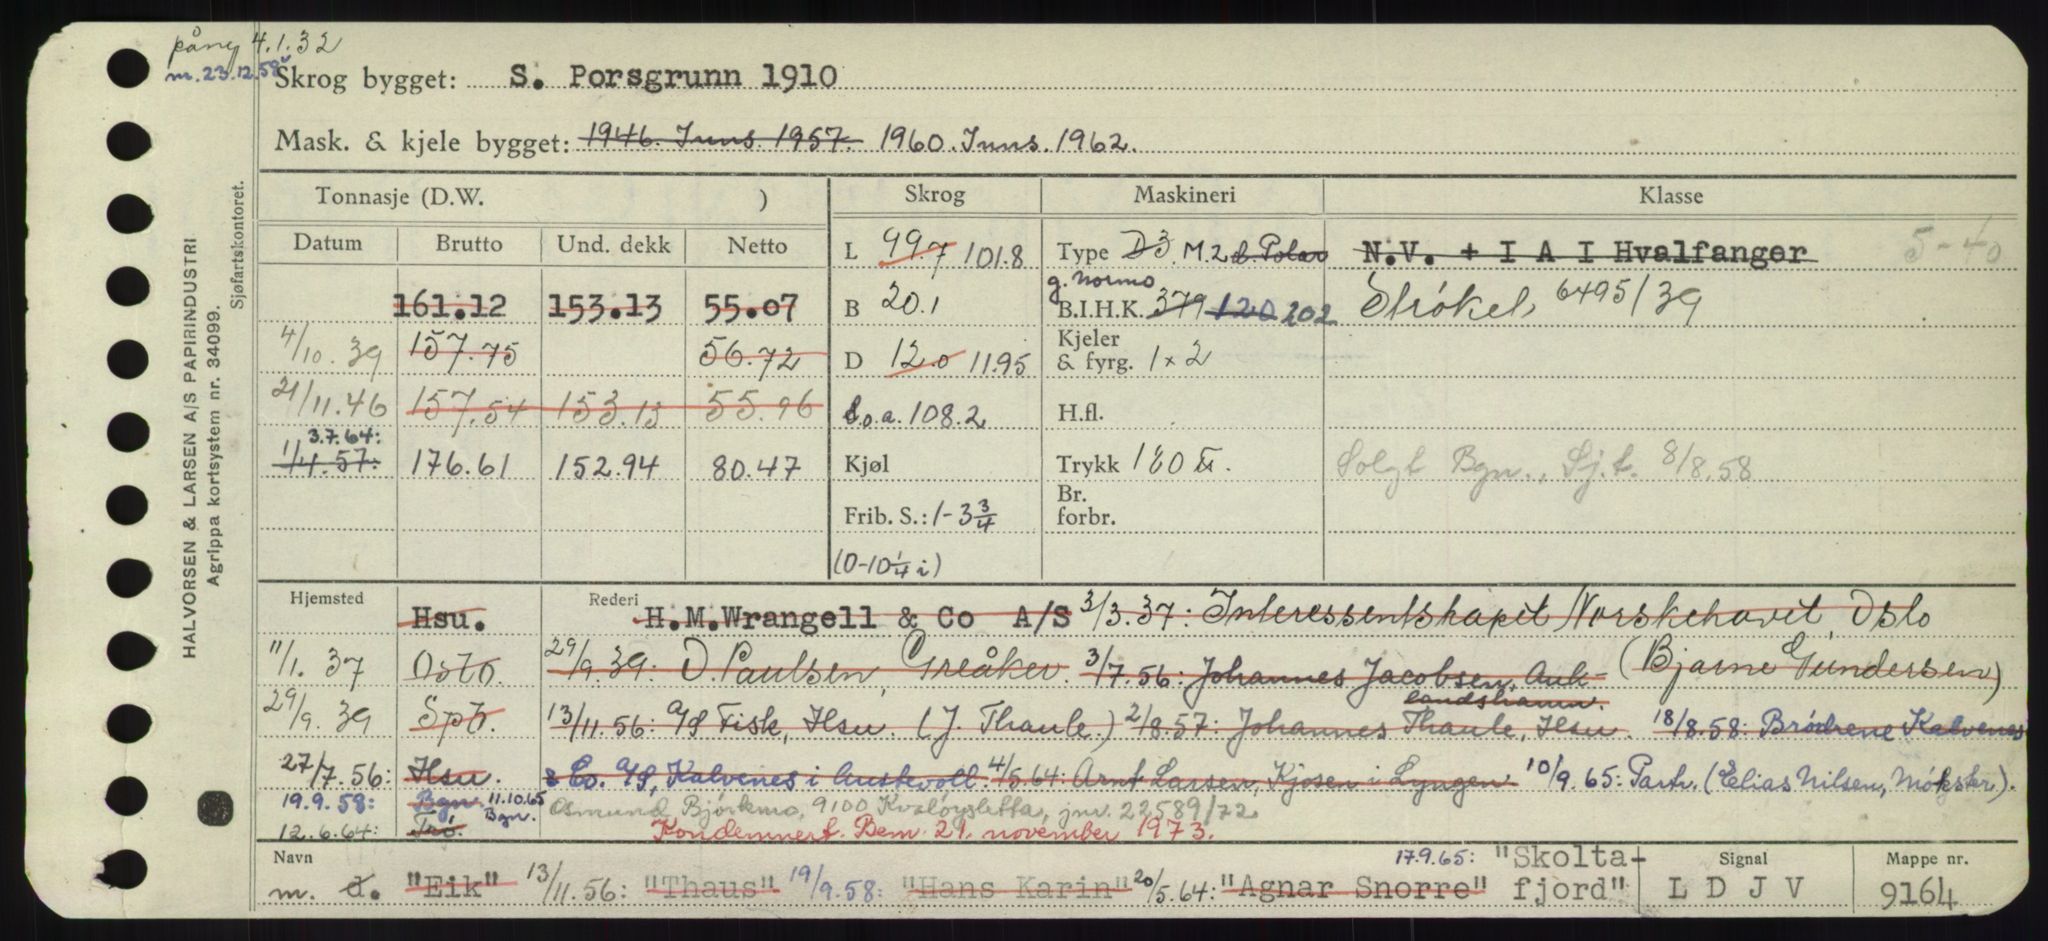 pång 4.1.32
m. 23.12.58
Skrog bygget: S. Porsgrunn 1910
Mask. & kjele bygget: 1946. Inns. 1957. 1960. Inns. 1962.
HALVORSEN & LARSEN A/S PAPIRINDUSTRI
Agrippa kortsystem nr. 34099.
Sjøfartskontoret.
Tonnasje (D.W. ) Skrog Maskineri Klasse
Datum Brutto Und. dekk Netto L 99.7 101.8 Type D3. M.2 d. Polar N.V. + I A I Hvalfanger 5-40
g. Normo
161.12 153.13 55.07 B 20.1 B.I.H.K. 379 120 202 Strøket, 6495/39
4/10.39 157.75 56.72 D 12.0 11.95 Kjeler & fyrg. 1x2
21/11.46 157.54 153.13 55.96 L.o.a. 108.2 H.fl.
3.7.64:
1/4.57: 176.61 152.94 80.47 Kjøl Trykk 180 Solgt Bgn., Sj.t. 8/8.58
Frib. S.: 1-3 3/4 Br. forbr.
(0-10 1/4 i)
Hjemsted Hsu. Rederi H.M.Wrangell & Co A/S 3/3.37: Interessentskapet Norskehavet, Oslo
11/1.37 Oslo. 29/9.39: O. Paulsen, Greåker. 3/7.56: Johannes Jacobsen, Auk- (Bjarne Gundersen)
landshamn.
29/9.39 Spb. 13/11.56: A/S Fisk, Hsu. (J. Thaule.) 2/8.57: Johannes Thaule, Hsu. 18/8.58: Brødrene Kalvenes
27/7.56: Hsu. & Co. A/S, Kalvenes i Austevoll. 4/5.64: Arnt Larsen, Kjosen i Lyngen 10/9.65: Partr. (Elias Nilsen, Møkster).
19.9.58: Bgn. 11.10.65 Bgn. Osmund Bjørkmo, 9100 Kvaløysletta, jnr. 22589/72
12.6.64: Trø. Kondemnert. Bem. 21. november 1973.
Navn 17.9.65: "Skolta- Signal Mappe nr.
m. d. "Eik" 13/11.56: "Thaus" 19/9.58: "Hans Karin" 20/5.64: "Agnar Snorre" fjord" L D J V 9164